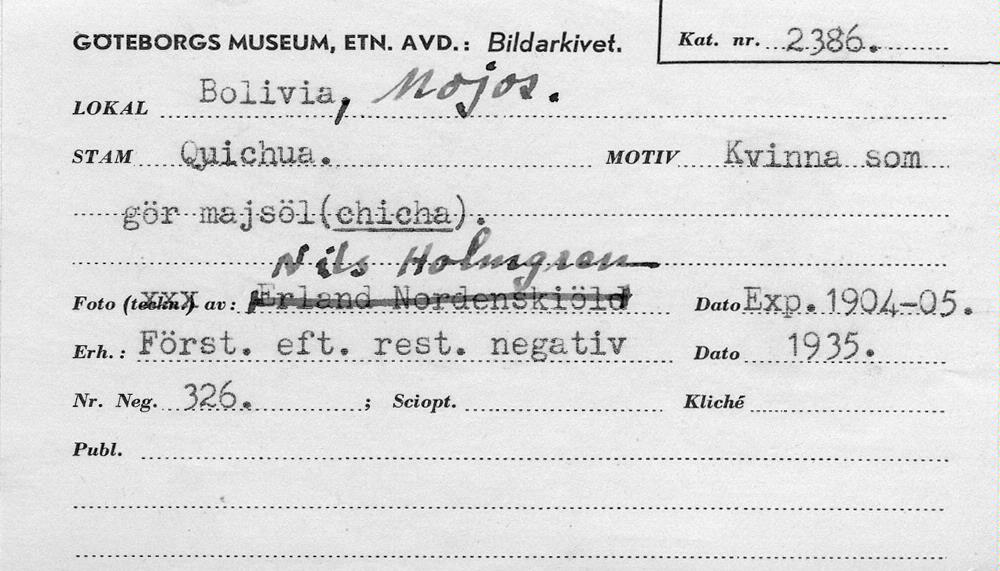 GÖTEBORGS MUSEUM, ETN. AVD.: Bildarkivet. Kat. nr. 2386.
LOKAL Bolivia, Mojos.
STAM Quichua. MOTIV Kvinna som
gör majsöl(chicha).
Nils Holmgren
Foto (teckn.) av: Erland Nordenskiöld Dato Exp. 1904-05.
Erh.: Först. eft. rest. negativ Dato 1935.
Nr. Neg. 326. ; Sciopt. Kliché
Publ.